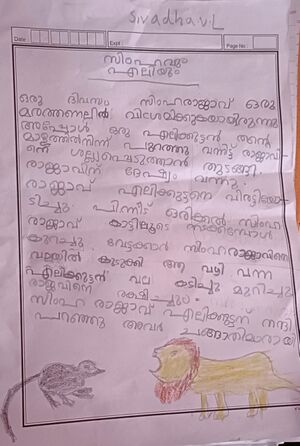 Sivadhav.L
Date :
Expt :
Page No :
സിംഹവും
എലിയും
ഒരു ദിവസം സിംഹരാജാവ് ഒരു
മരത്തണലിൽ വിശ്രമിക്കുകയായിരുന്നു
അപ്പോൾ ഒരു എലിക്കുട്ടൻ തന്റെ
മാളത്തിൽനിന്ന് പുറത്തു വന്ന് രാജാവി
നെ ശല്യപ്പെടുത്താൻ തുടങ്ങി.
രാജാവിന് ദേഷ്യം വന്നു.
രാജാവ് എലിക്കുട്ടനെ വിരട്ടിയോ
ടിച്ചു. പിന്നീട് ഒരിക്കൽ സിംഹ
രാജാവ് കാട്ടിലൂടെ നടക്കുമ്പോൾ
കുറച്ചു വേട്ടക്കാർ സിംഹരാജാവിനെ
വലയിൽ കുടുക്കി ആ വഴി വന്ന
എലിക്കുട്ടൻ വല കടിച്ചു മുറിച്ചു
രാജാവിനെ രക്ഷിച്ചു.
സിംഹ രാജാവ് എലിക്കുട്ടന് നന്ദി
പറഞ്ഞു അവർ ചങ്ങാതിമാരായി